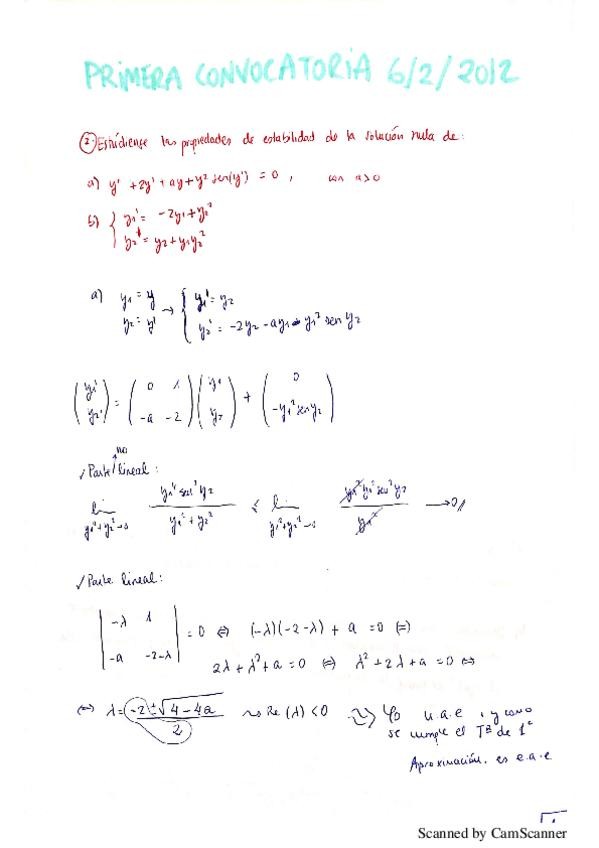 PRIMERA CONVOCATORIA 6/2/2012
2. Estúdiense las propiedades de estabilidad de la solución nula de:
a) y'' + 2y' + ay + y² sen(y') = 0, con a>0
b) { y₁' = -2y₁ + y₂²
y₂' = y₂ + y₁y₂²
a) y₁ = y
y₂ = y' → { y₁' = y₂
y₂' = -2y₂ - ay₁ - y₁² sen y₂
(y₁' y₂') = (0 1 -a -2)(y₁ y₂) + (0 -y₁² sen y₂)
✓ Parte no lineal:
lim y₁²+y₂²→0 y₁⁴ sen² y₂ / y₁²+y₂² ≤ lim y₁²+y₂²→0 y₁² y₁² sen² y₂ / y₁² → 0
✓ Parte lineal:
| -λ 1 -a -2-λ | = 0 ⇔ (-λ)(-2-λ) + a = 0 ⇔
2λ + λ² + a = 0 ⇔ λ² + 2λ + a = 0 ⇔
⇔ λ = -2 ± √4 - 4a / 2 Re(λ) < 0 φ₀ u.a.e, y como
se cumple el Tª de 1ª
Aproximación. es e.a.e
Scanned by CamScanner